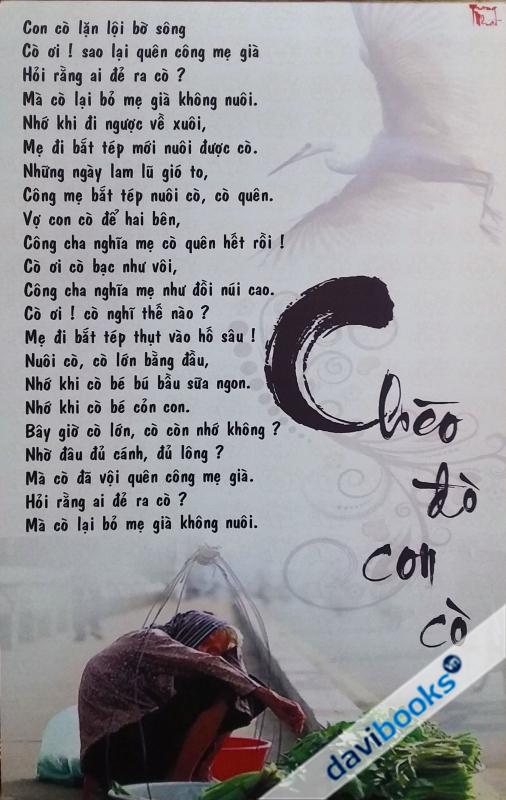 Trung Nhựt
Con cò lặn lội bờ sông
Cò ơi ! sao lại quên công mẹ già
Hỏi rằng ai đẻ ra cò ?
Mà cò lại bỏ mẹ già không nuôi.
Nhớ khi đi ngược về xuôi,
Mẹ đi bắt tép mới nuôi được cò.
Những ngày lam lũ gió to,
Công mẹ bắt tép nuôi cò, cò quên.
Vợ con cò để hai bên,
Công cha nghĩa mẹ cò quên hết rồi !
Cò ơi cò bạc như vôi,
Công cha nghĩa mẹ như đồi núi cao.
Cò ơi ! cò nghĩ thế nào ?
Mẹ đi bắt tép thụt vào hố sâu !
Nuôi cò, cò lớn bằng đầu,
Nhớ khi cò bé bú bầu sữa ngon.
Nhớ khi cò bé cỏn con.
Bây giờ cò lớn, cò còn nhớ không ?
Nhờ đâu đủ cánh, đủ lông ?
Mà cò đã vội quên công mẹ già.
Hỏi rằng ai đẻ ra cò ?
Mà cò lại bỏ mẹ già không nuôi.
Chèo
đò
con
cò
davibooks.vn